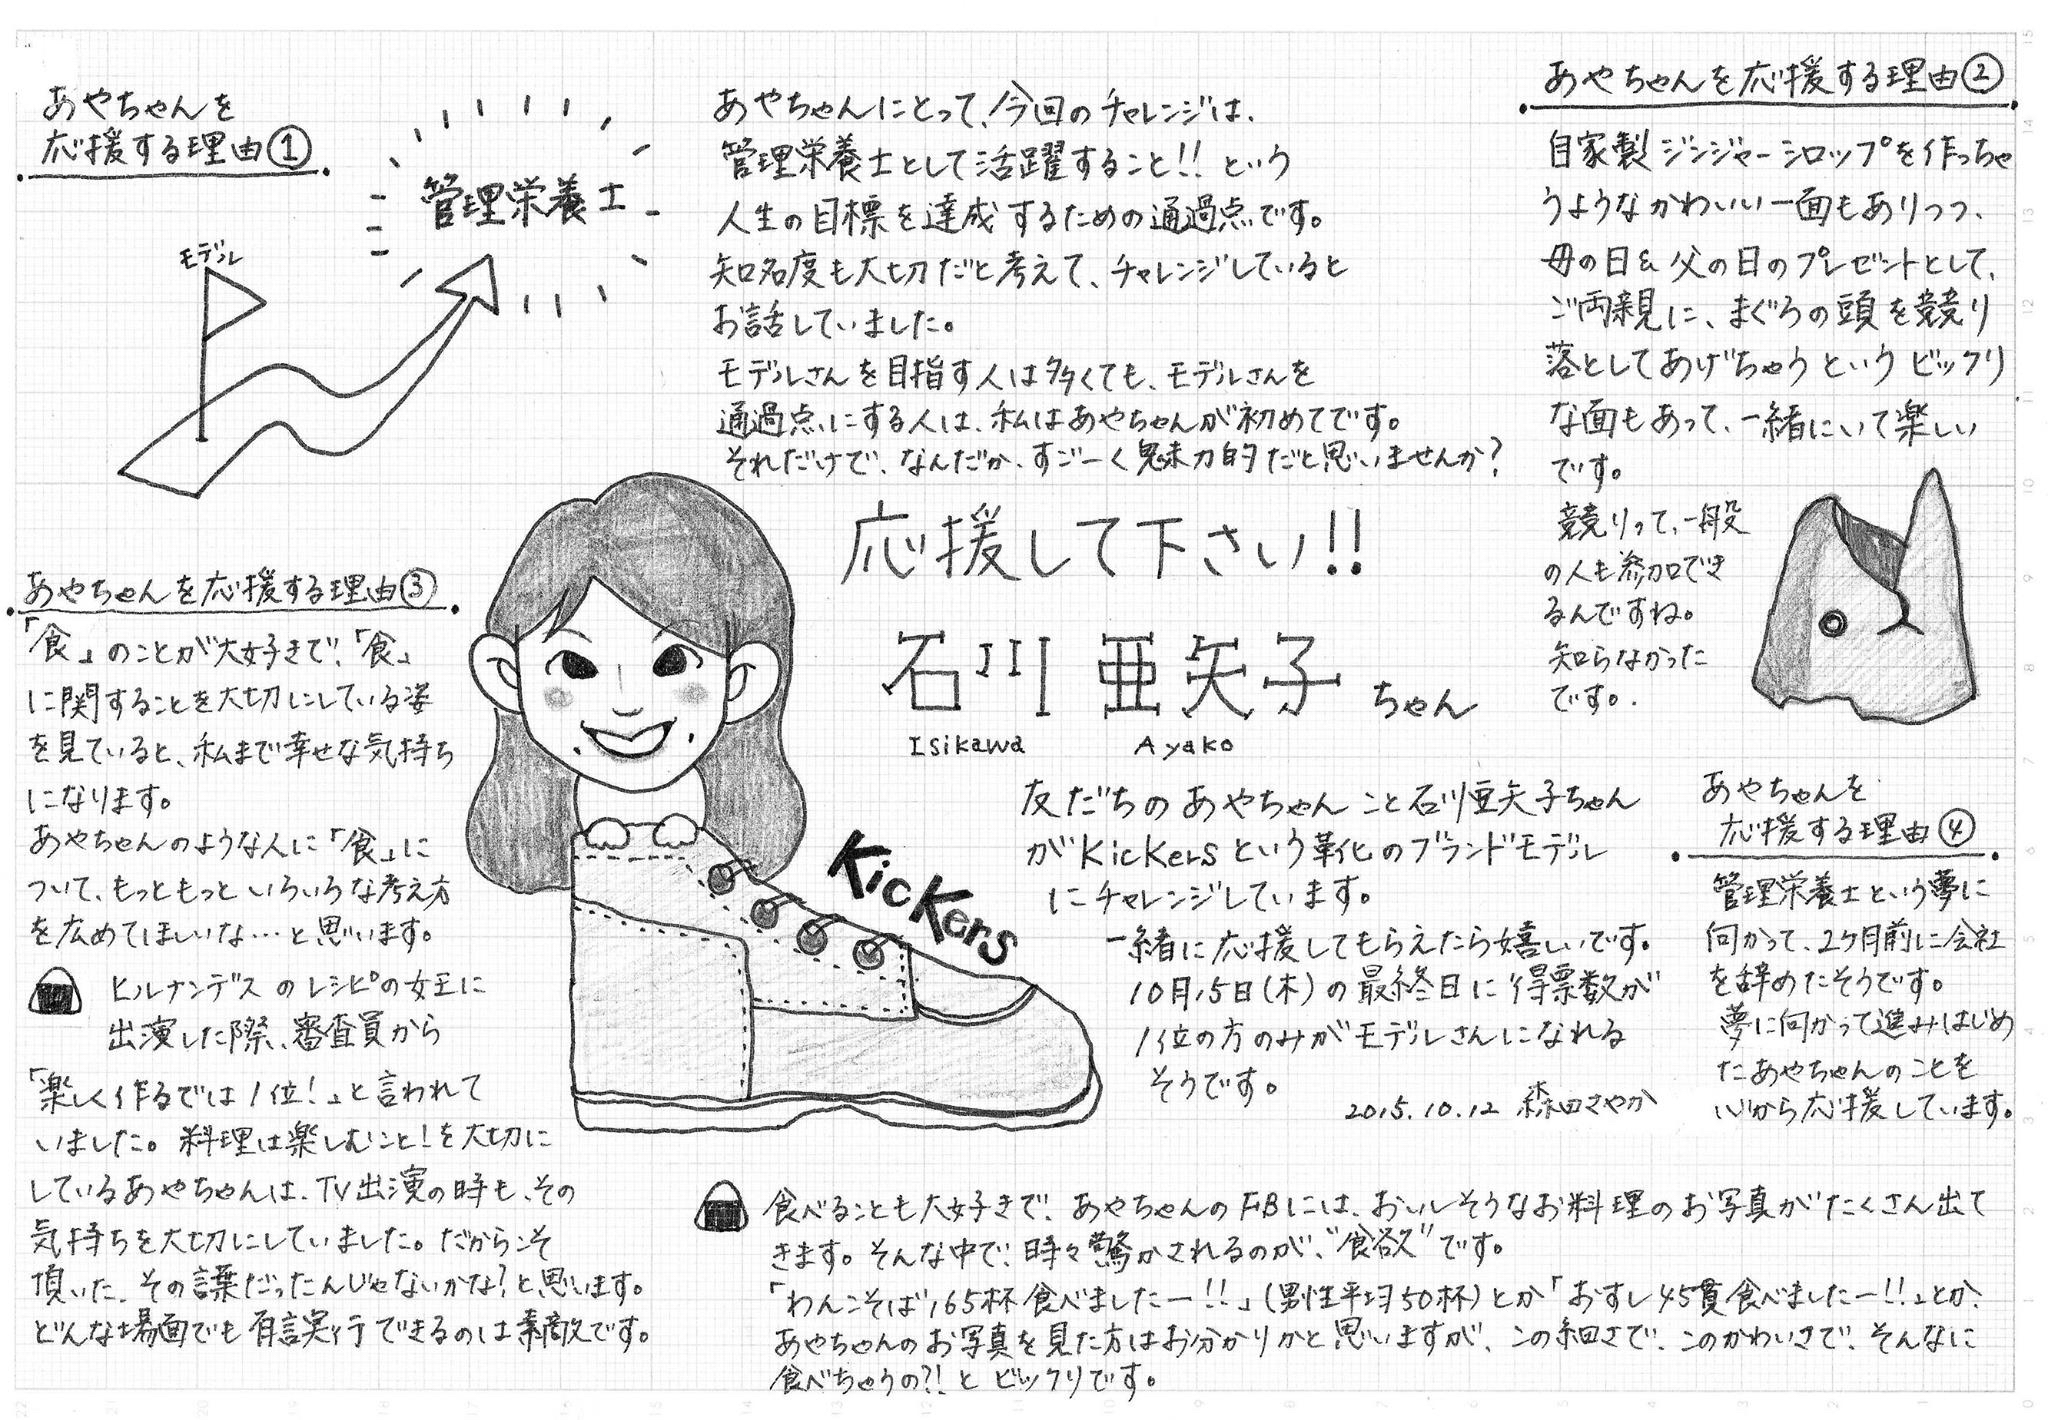 あやちゃんを
応援する理由①
モデル
管理栄養士
あやちゃんにとって、今回のチャレンジは、
管理栄養士として活躍すること!! という
人生の目標を達成するための通過点です。
知名度も大切だと考えて、チャレンジしていると
お話していました。
モデルさんを目指す人は多くても、モデルさんを
通過点にする人は、私はあやちゃんが初めてです。
それだけで、なんだか、すごーく魅力的だと思いませんか?
あやちゃんを応援する理由②
自家製ジンジャーシロップを作っちゃ
うようなかわいい一面もありつつ、
母の日&父の日のプレゼントとして、
ご両親に、まぐろの頭を競り
落としてあげちゃうというビックリ
な面もあって、一緒にいて楽しい
です。
競りって、一般
の人も参加でき
るんですね。
知らなかった
です。
応援して下さい!!
石川 亜矢子ちゃん
Isikawa Ayako
あやちゃんを応援する理由③
「食」のことが大好きで、「食」
に関することを大切にしている姿
を見ていると、私まで幸せな気持ち
になります。
あやちゃんのような人に「食」に
ついて、もっともっといろいろな考え方
を広めてほしいな…と思います。
ヒルナンデスのレシピの女王に
出演した際、審査員から
「楽しく作るでは1位!」と言われて
いました。料理は楽しむこと!を大切に
しているあやちゃんは、TV出演の時も、その
気持ちを大切にしていました。だからこそ
頂いた、その言葉だったんじゃないかな?と思います。
どんな場面でも有言実行できるのは素敵です。
Kickers
友だちのあやちゃんこと石川亜矢子ちゃん
がKickersという革化のブランドモデル
にチャレンジしています。
一緒に応援してもらえたら嬉しいです。
10月15日(木)の最終日に得票数が
1位の方のみがモデルさんになれる
そうです。
2015.10.12 森田さやか
あやちゃんを
応援する理由④
管理栄養士という夢に
向かって、2ヶ月前に会社
を辞めたそうです。
夢に向かって進みはじめ
たあやちゃんのことを
心から応援しています。
食べることも大好きで、あやちゃんのFBには、おいしそうなお料理のお写真がたくさん出て
きます。そんな中で、時々驚かされるのが、"食欲"です。
「わんこそば165杯食べましたー!!」(男性平均50杯)とか「おすし45貫食べましたー!!」とか、
あやちゃんのお写真を見た方はお分かりかと思いますが、この細さで、このかわいさで、そんなに
食べちゃうの?!とビックリです。